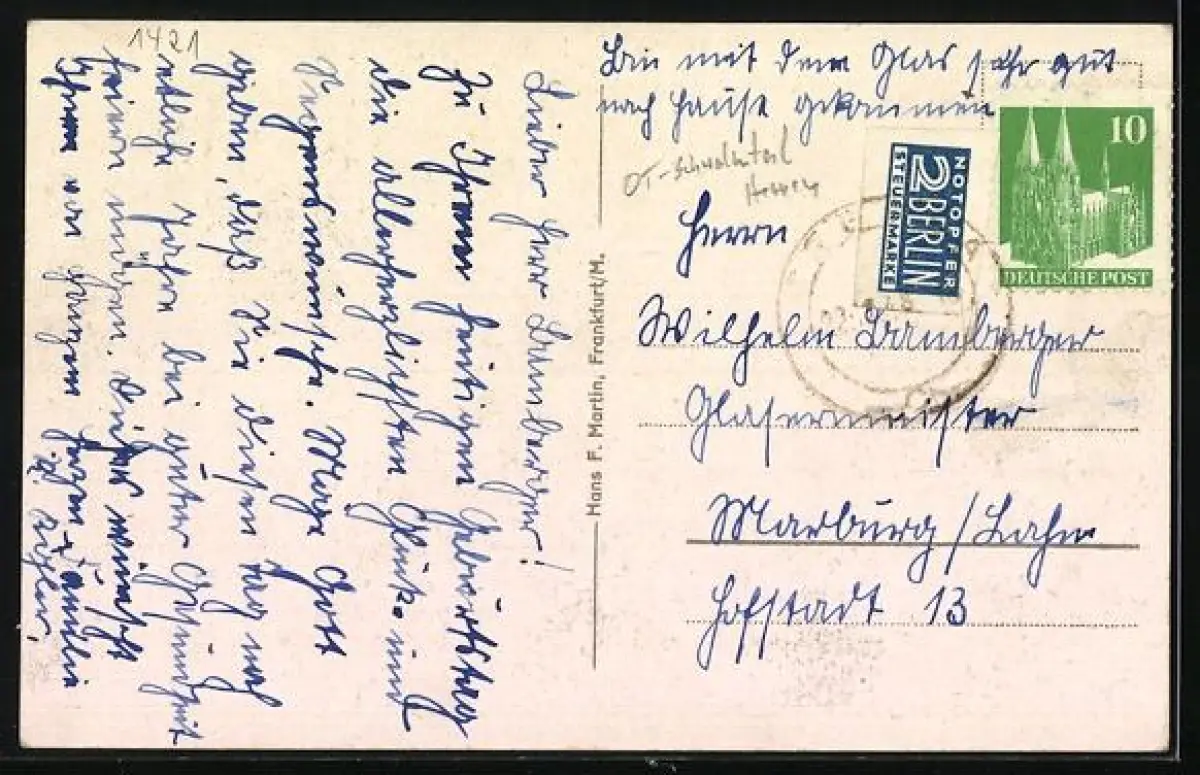 1421
Lieber Herr Bamberger!
Zu Ihrem heutigen Geburtstag
die allerherzlichsten Glück- und
Segenswünsche. Möge Gott
geben, daß Sie diesen Tag noch
etliche Jahre bei guter Gesundheit
feiern mögen. Dieses wünscht
Ihnen von ganzem Herzen
Familie
Bin mit dem Glas sehr gut
nach Hause gekommen
OT-Schwalmtal
Hessen
Herrn
Wilhelm Bamberger
Glasermeister
Marburg/Lahn
Hofstadt 13
10
DEUTSCHE POST
NOTOPFER
2 BERLIN
STEUERMARKE
Hans F. Martin, Frankfurt/M.